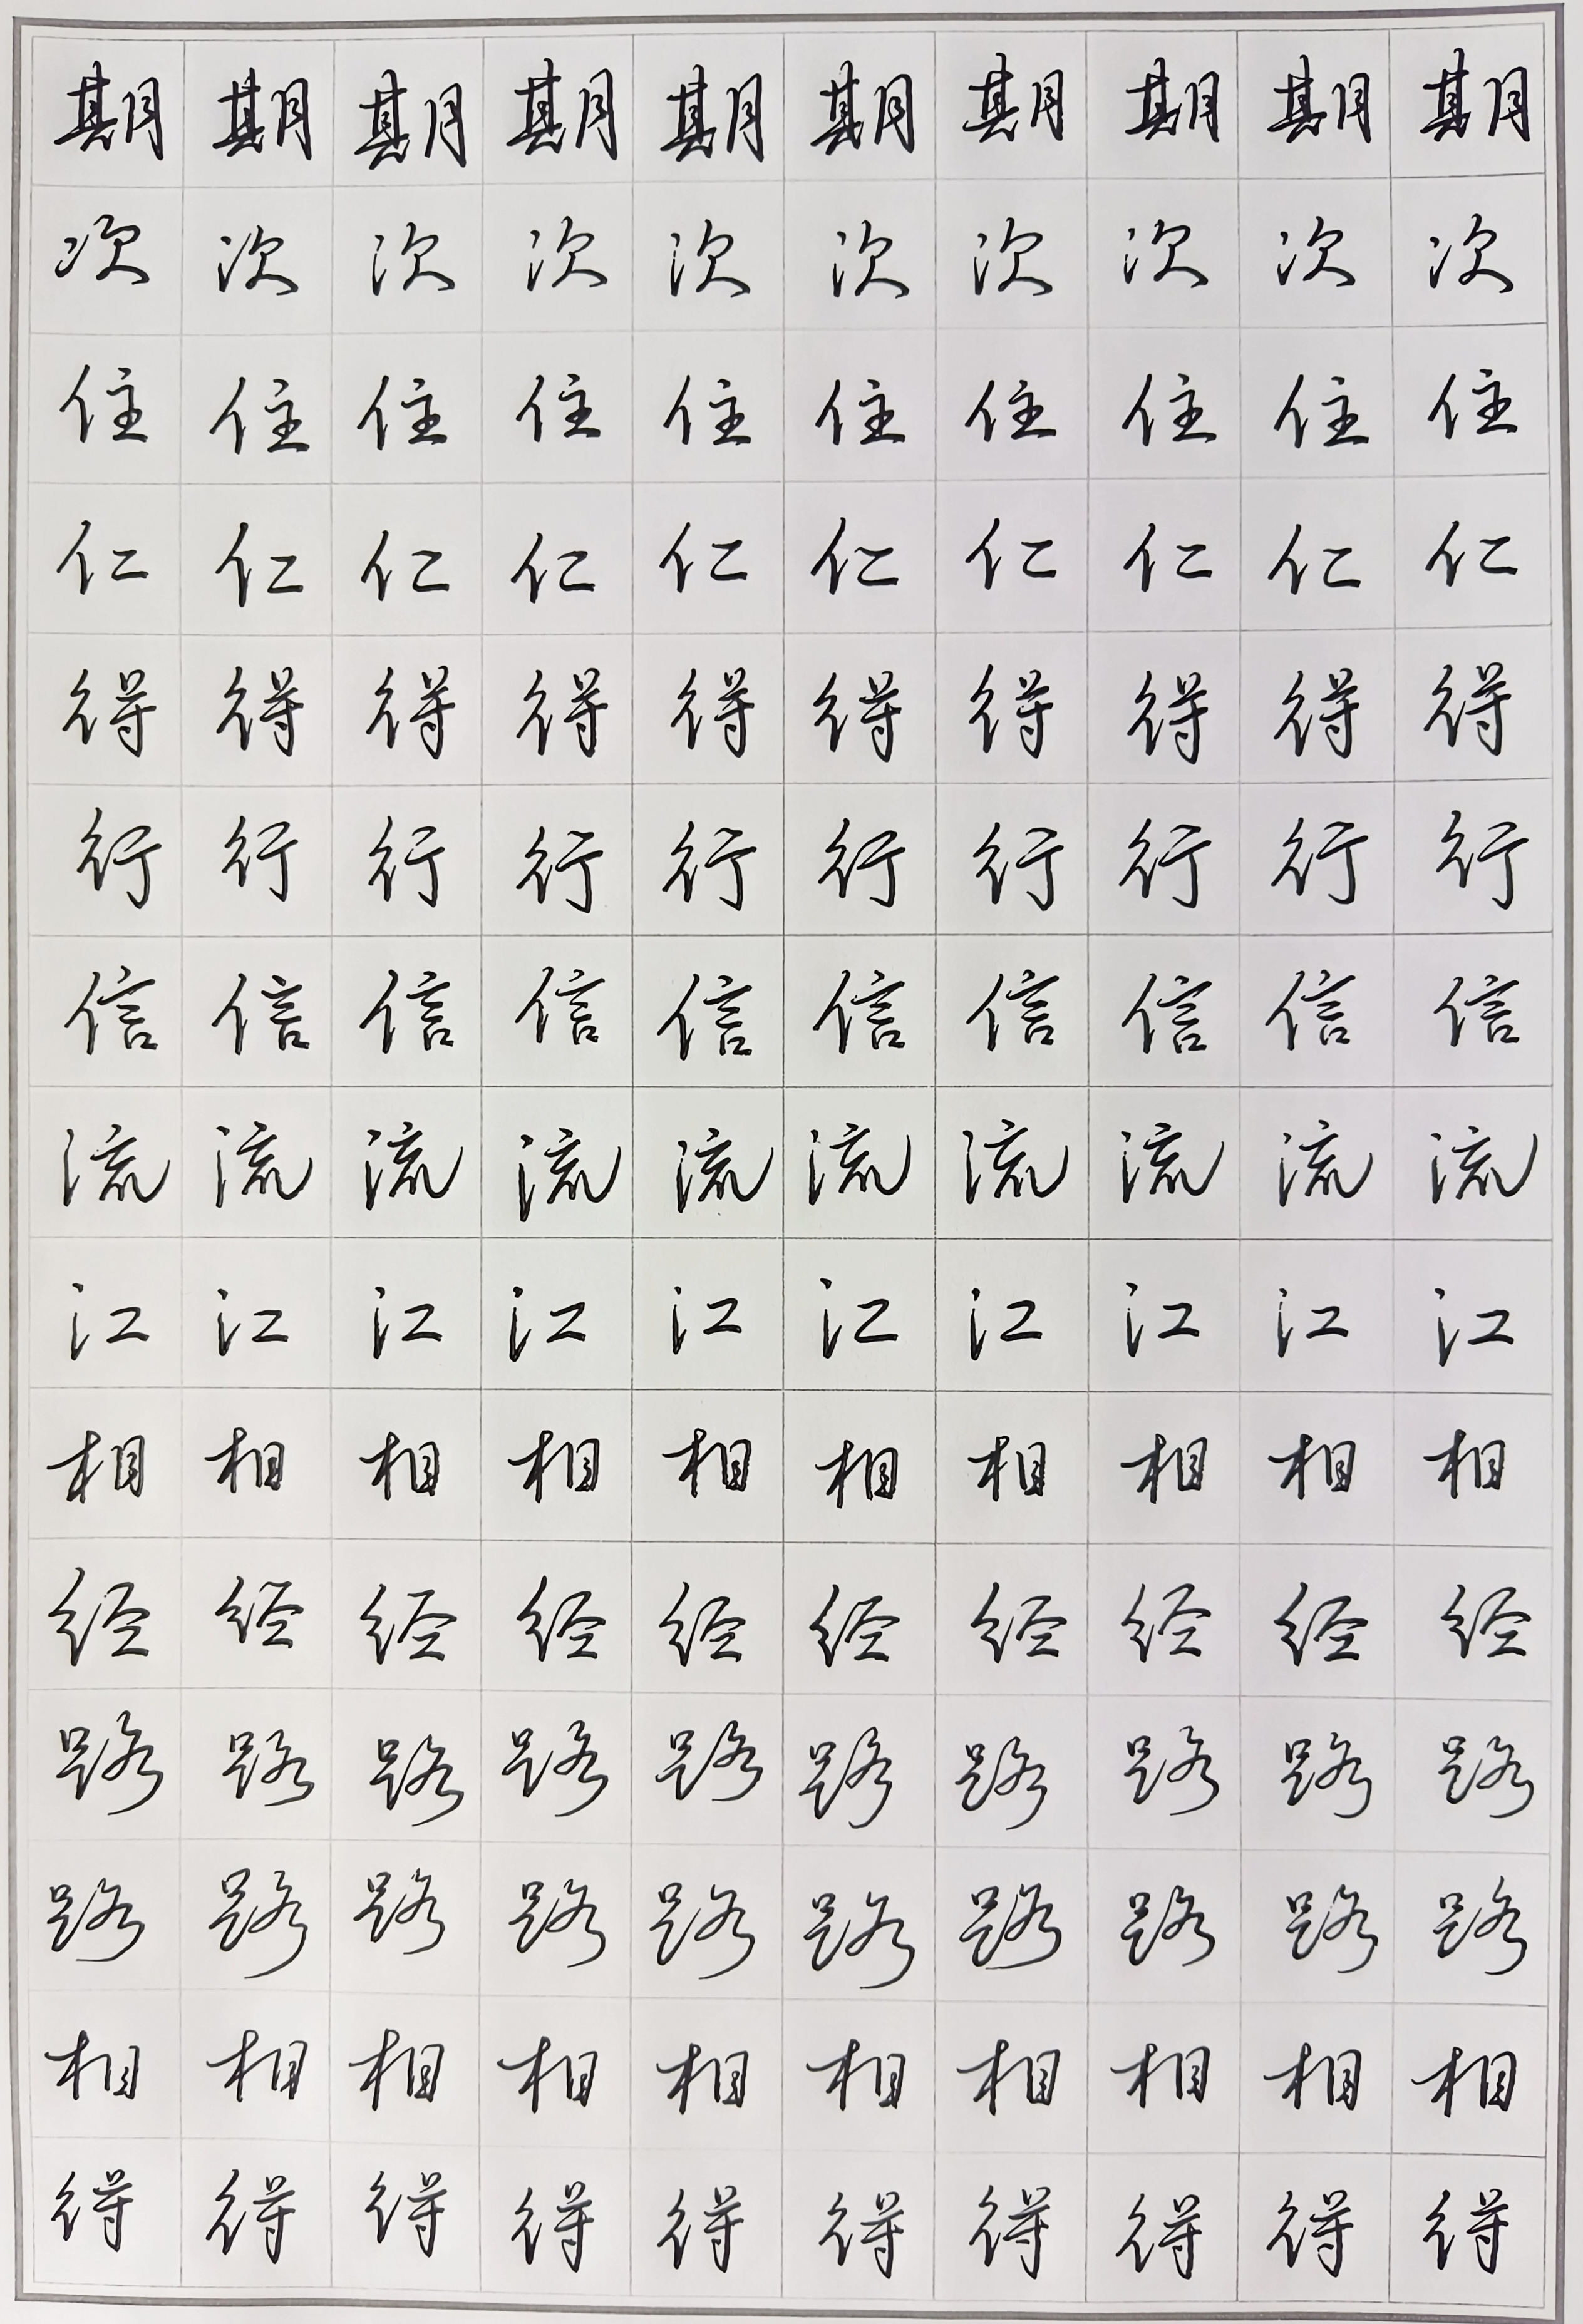 期期期期期期期期期期
次次次次次次次次次次
住住住住住住住住住住
仁仁仁仁仁仁仁仁仁仁
得得得得得得得得得得
行行行行行行行行行行
信信信信信信信信信信
流流流流流流流流流流
江江江江江江江江江江
相相相相相相相相相相
经经经经经经经经经经
路路路路路路路路路路
路路路路路路路路路路
相相相相相相相相相相
得得得得得得得得得得